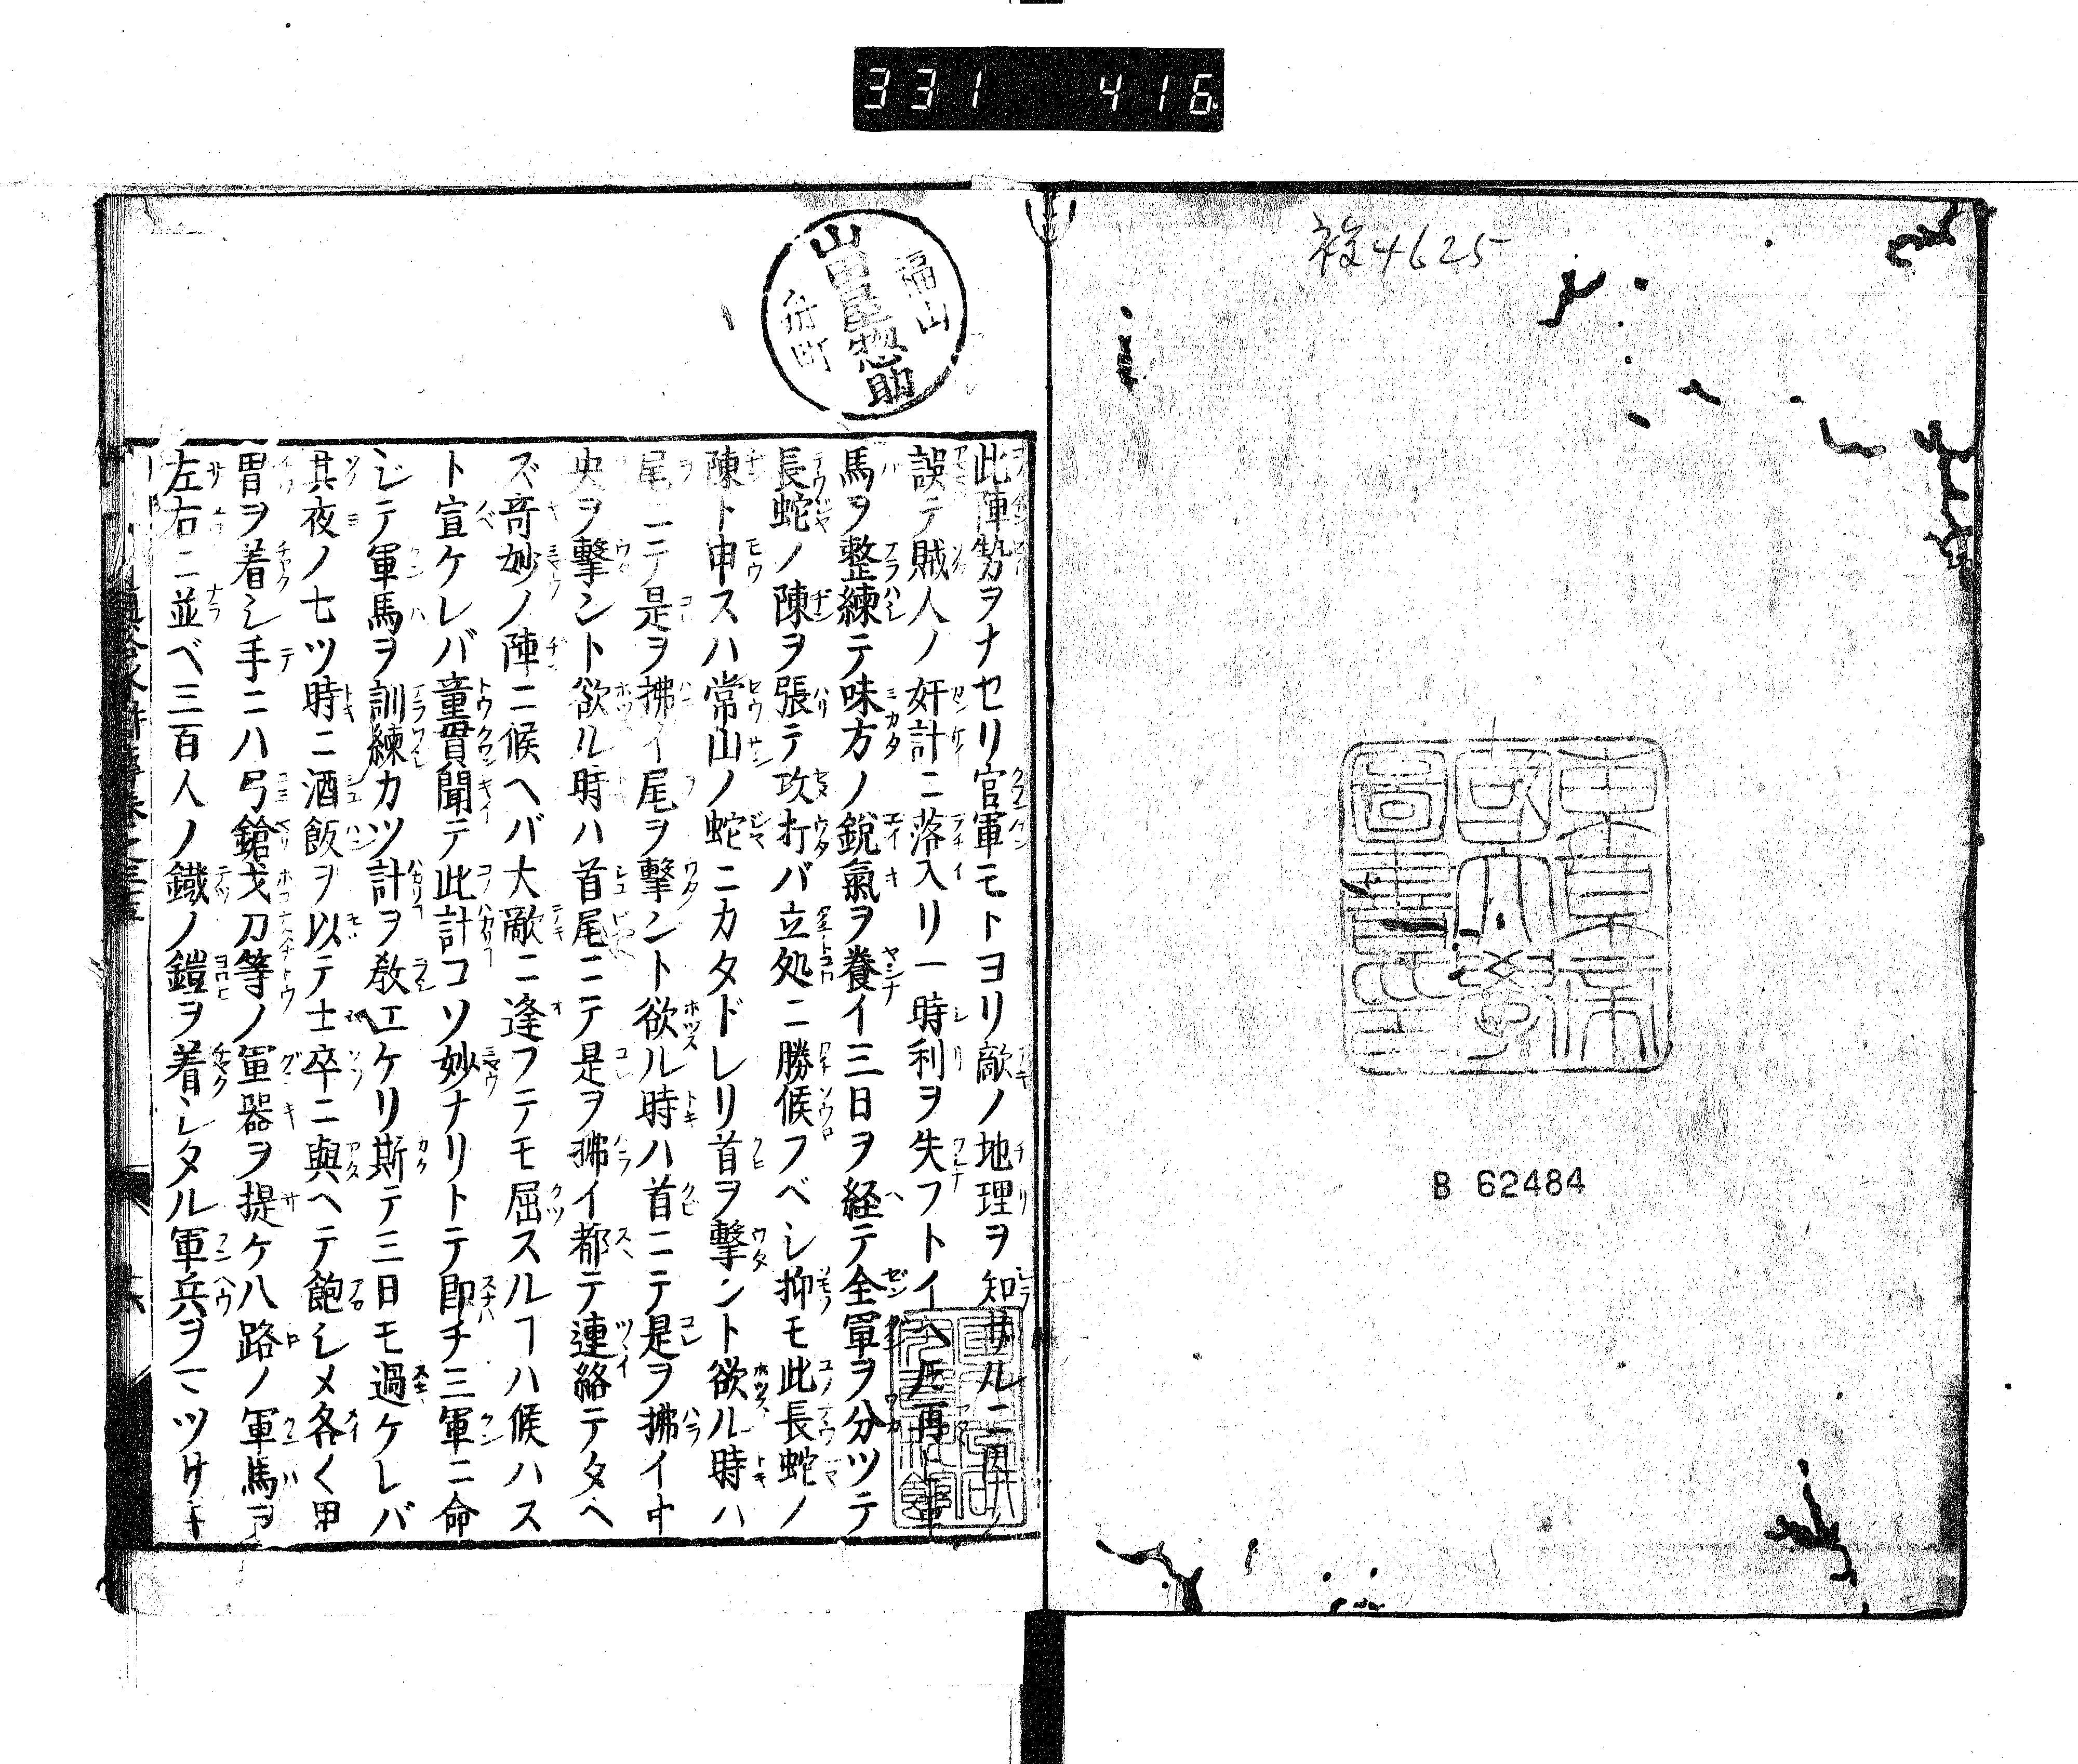 331 416
複4625
東京帝國大學圖書印
B 62484
福山
山田屋惣助
舟町
此陣勢ヲナセリ官軍モトヨリ敵ノ地理ヲ知サルニ因
誤テ賊人ノ奸計ニ落入リ一時利ヲ失フトイヘ𪜈再ヒ軍
馬ヲ整練テ味方ノ銳氣ヲ養イ三日ヲ経テ全軍ヲ分ツテ
長蛇ノ陳ヲ張テ攻打バ立処ニ勝候フベシ抑モ此長蛇ノ
陳ト申スハ常山ノ蛇ニカタドレリ首ヲ撃ント欲ル時ハ
尾ニテ是ヲ拂イ尾ヲ撃ント欲ル時ハ首ニテ是ヲ拂イ中
央ヲ撃ント欲ル時ハ首尾ニテ是ヲ拂イ都テ連絡テタヘ
ズ奇妙ノ陣ニ候ヘバ大敵ニ逢フテモ屈スルヿハ候ハス
ト宣ケレバ童貫聞テ此計コソ妙ナリトテ即チ三軍ニ命
ジテ軍馬ヲ訓練カツ計ヲ教エケリ斯テ三日モ過ケレバ
其夜ノ七ツ時ニ酒飯ヲ以テ士卒ニ與ヘテ飽シメ各〱甲
冑ヲ着シ手ニハ弓鎗戈刀等ノ軍器ヲ提ケ八路ノ軍馬ヲ
左右ニ並ベ三百人ノ鐵ノ鎧ヲ着シタル軍兵ヲ